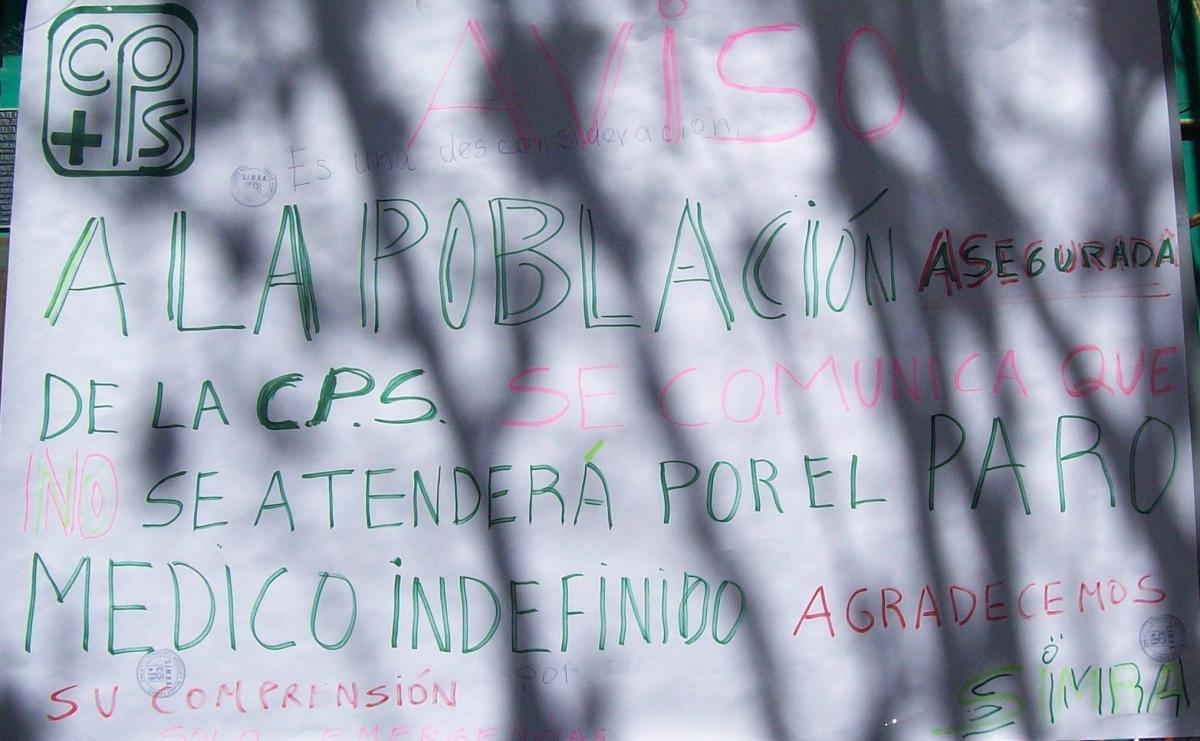 CPS
AVISO
Es una desconsideración.
A LA POBLACIÓN ASEGURADA
DE LA C.P.S. SE COMUNICA QUE
NO SE ATENDERÁ POR EL PARO
MEDICO INDEFINIDO AGRADECEMOS
POR SU
SU COMPRENSIÓN SIMRA
SOLO EMERGENCIAS